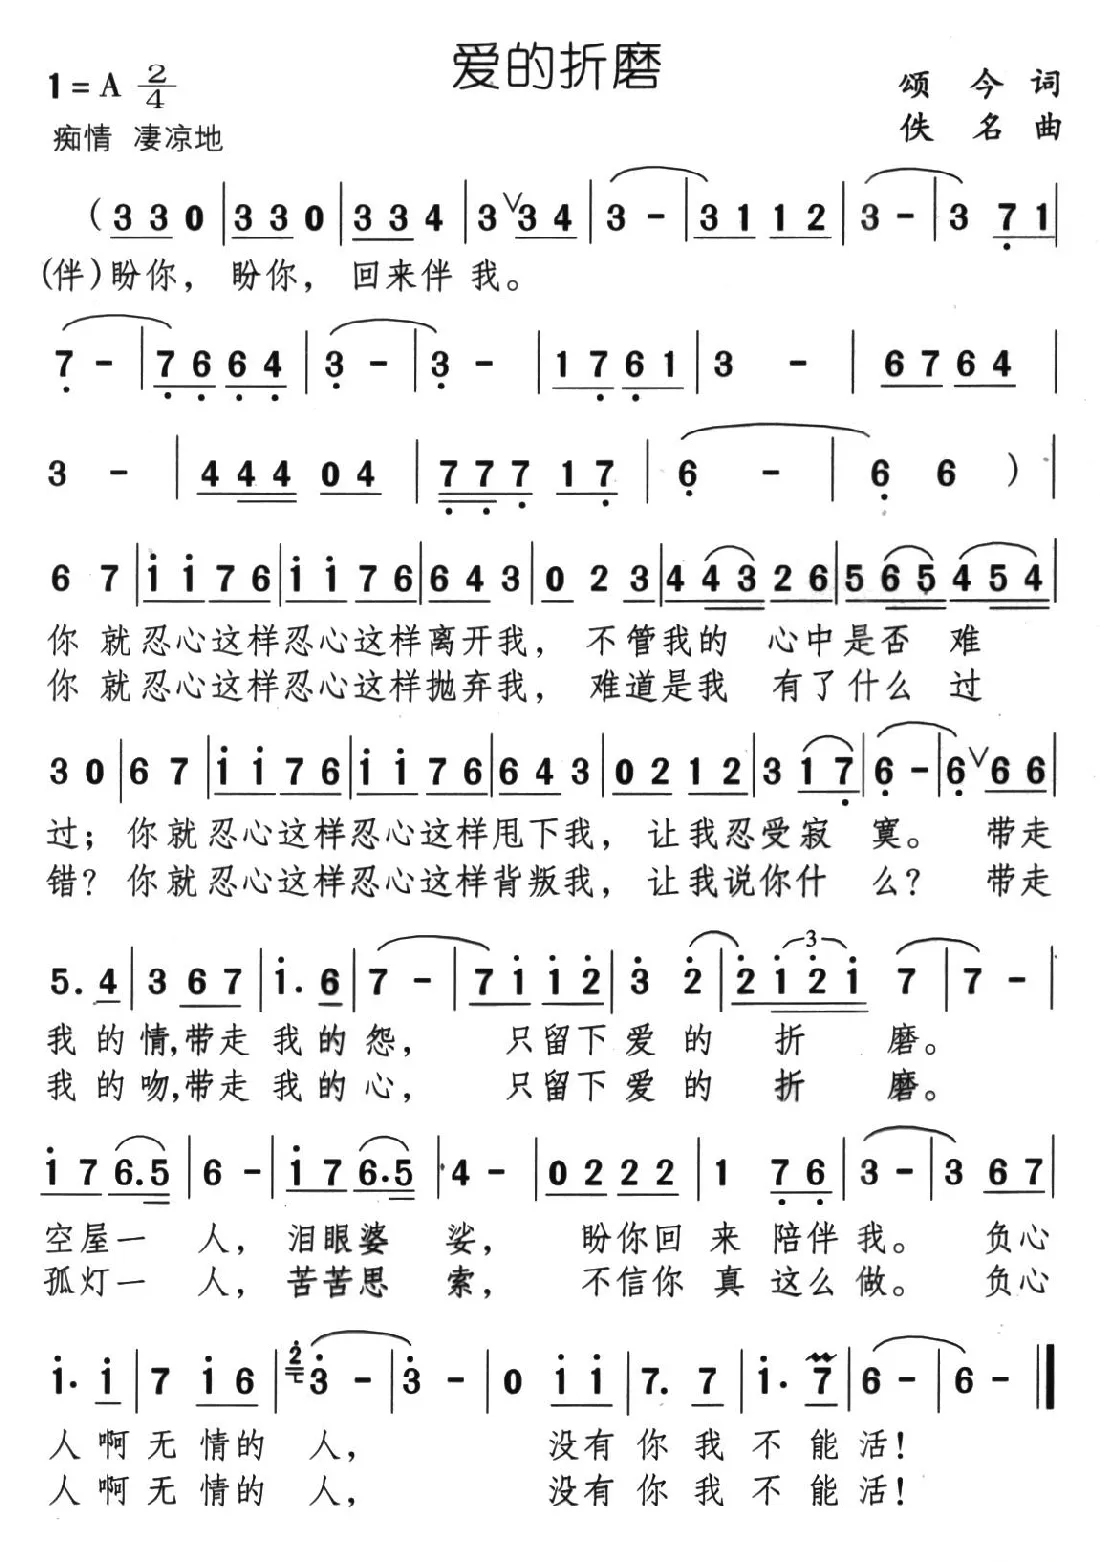 爱的折磨
1=A 2/4
颂 今 词
痴情 凄凉地
佚 名 曲
(3 3 0 | 3 3 0 | 3 3 4 | 3 ∨ 3 4 | 3 - | 3 1 1 2 | 3 - | 3 7 1 |
(伴)盼你, 盼你, 回来伴 我。
7 - | 7 6 6 4 | 3 - | 3 - | 1 7 6 1 | 3 - | 6 7 6 4 |
3 - | 4 4 4 0 4 | 7 7 7 1 7 | 6 - | 6 6 ) |
6 7 | i i 7 6 | i i 7 6 | 6 4 3 | 0 2 3 | 4 4 3 2 6 | 5 6 5 4 5 4 |
你 就忍心这样忍心这样离开我, 不管我的 心中是否 难
你 就忍心这样忍心这样抛弃我, 难道是我 有了什么 过
3 0 | 6 7 | i i 7 6 | i i 7 6 | 6 4 3 | 0 2 1 2 | 3 1 7 | 6 - | 6 ∨ 6 6 |
过; 你就忍心这样忍心这样甩下我, 让我忍受寂 寞。 带走
错? 你就忍心这样忍心这样背叛我, 让我说你什 么? 带走
5. 4 | 3 6 7 | i. 6 | 7 - | 7 i i 2 | 3 2 | 2 i 2 i | 7 7 | 7 - |
我 的 情,带走 我 的 怨, 只留下 爱 的 折 磨。
我 的 吻,带走 我 的 心, 只留下 爱 的 折 磨。
i 7 6.5 | 6 - | i 7 6.5 | 4 - | 0 2 2 2 | 1 7 6 | 3 - | 3 6 7 |
空屋一 人, 泪眼婆 娑, 盼你回 来 陪伴 我。 负心
孤灯一 人, 苦苦思 索, 不信你 真 这么 做。 负心
i. i | 7 i 6 | 2 3 - | 3 - | 0 i i | 7. 7 | i. 7 | 6 - | 6 - ‖
人 啊 无 情的 人, 没有 你 我 不 能 活!
人 啊 无 情的 人, 没有 你 我 不 能 活!